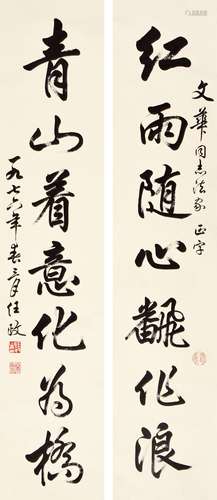 文華同志法家正字
红雨随心飜作浪
青山着意化為橋
一九七六年春三月任政